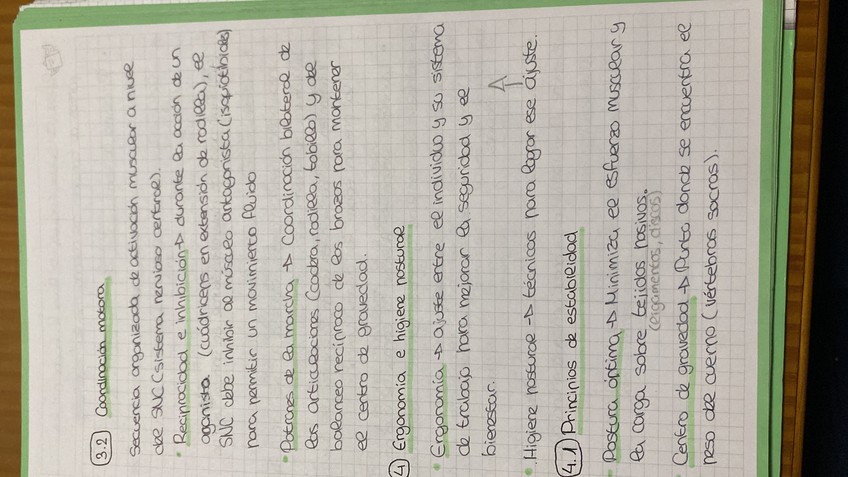 3.2 Coordinación motora
Secuencia organizada de activación muscular a nivel
del SNC (sistema nervioso central).
• Reciprocidad e inhibición → durante la acción de un
agonista (cuádriceps en extensión de rodilla), el
SNC debe inhibir al músculo antagonista (isquiotibiales)
para permitir un movimiento fluido
• Patrones de la marcha → Coordinación bilateral de
las articulaciones (cadera, rodilla, tobillo) y del
balanceo recíproco de los brazos para mantener
el centro de gravedad.
4 Ergonomía e higiene postural
• Ergonomía → ajuste entre el individuo y su sistema
de trabajo para mejorar la seguridad y el
bienestar.
• Higiene postural → técnicas para lograr ese ajuste.
4.1 Principios de estabilidad
• Postura óptima → Minimiza el esfuerzo muscular y
la carga sobre tejidos pasivos.
(ligamentos, discos)
• Centro de gravedad → Punto donde se encuentra el
peso del cuerpo (vértebras sacras).